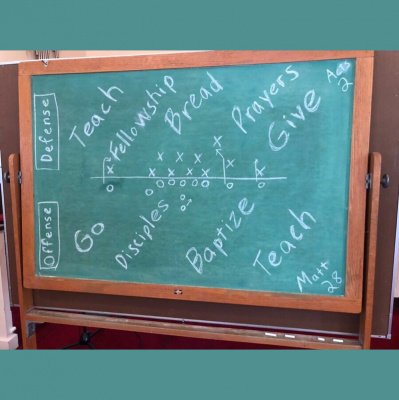 Defense
Teach
Fellowship
Bread
Prayers
Give
Acts
2
x x x x x
x x x x x x x
o o o o o o o o o
Offense
Go
Disciples
Baptize
Teach
Matt
28